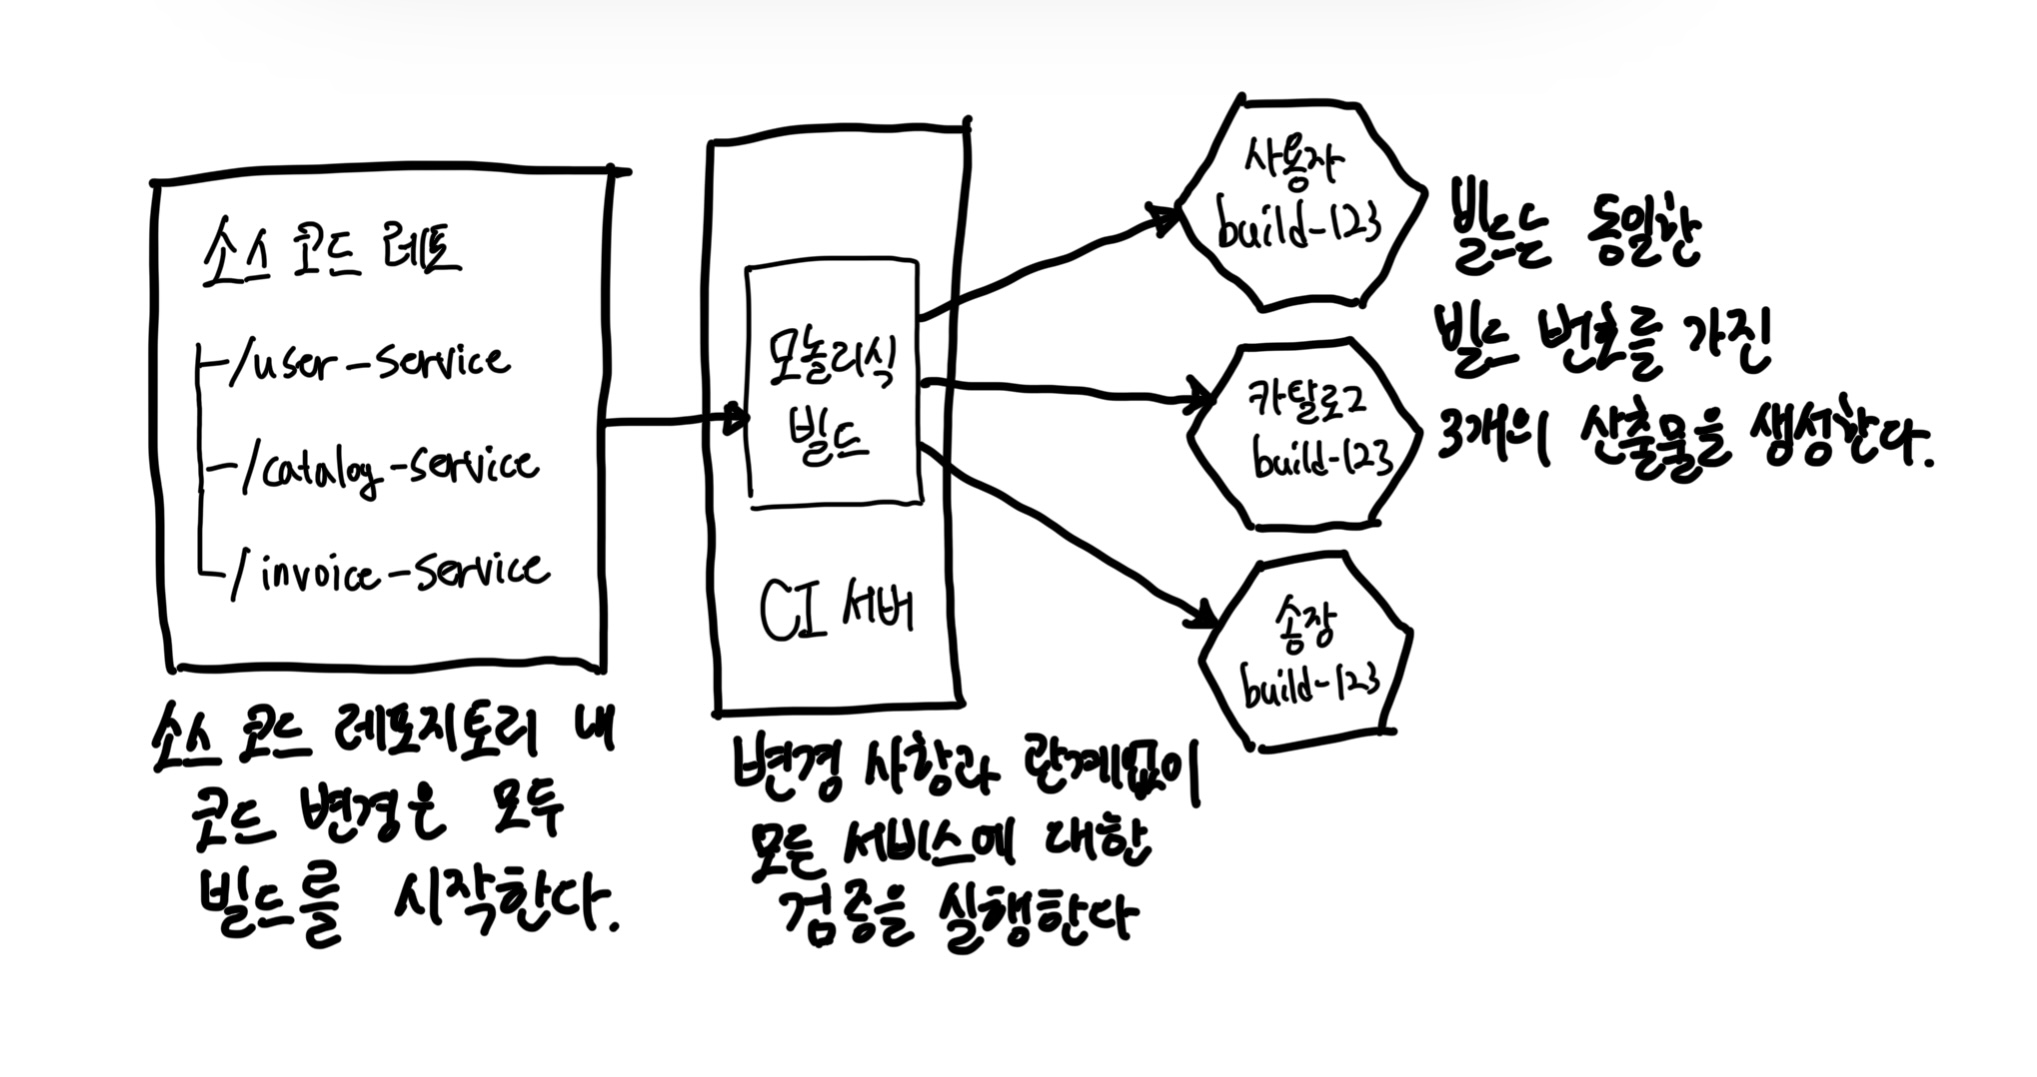 소스 코드 레토
/user-service
/catalog-service
/invoice-service
소스 코드 레포지토리 내
코드 변경은 모두
빌드를 시작한다.
모놀리식
빌드
CI 서버
변경 사항과 관계없이
모든 서비스에 대한
검증을 실행한다
사용자
build-123
카탈로그
build-123
송장
build-123
빌드는 동일한
빌드 번호를 가진
3개의 산출물을 생성한다.